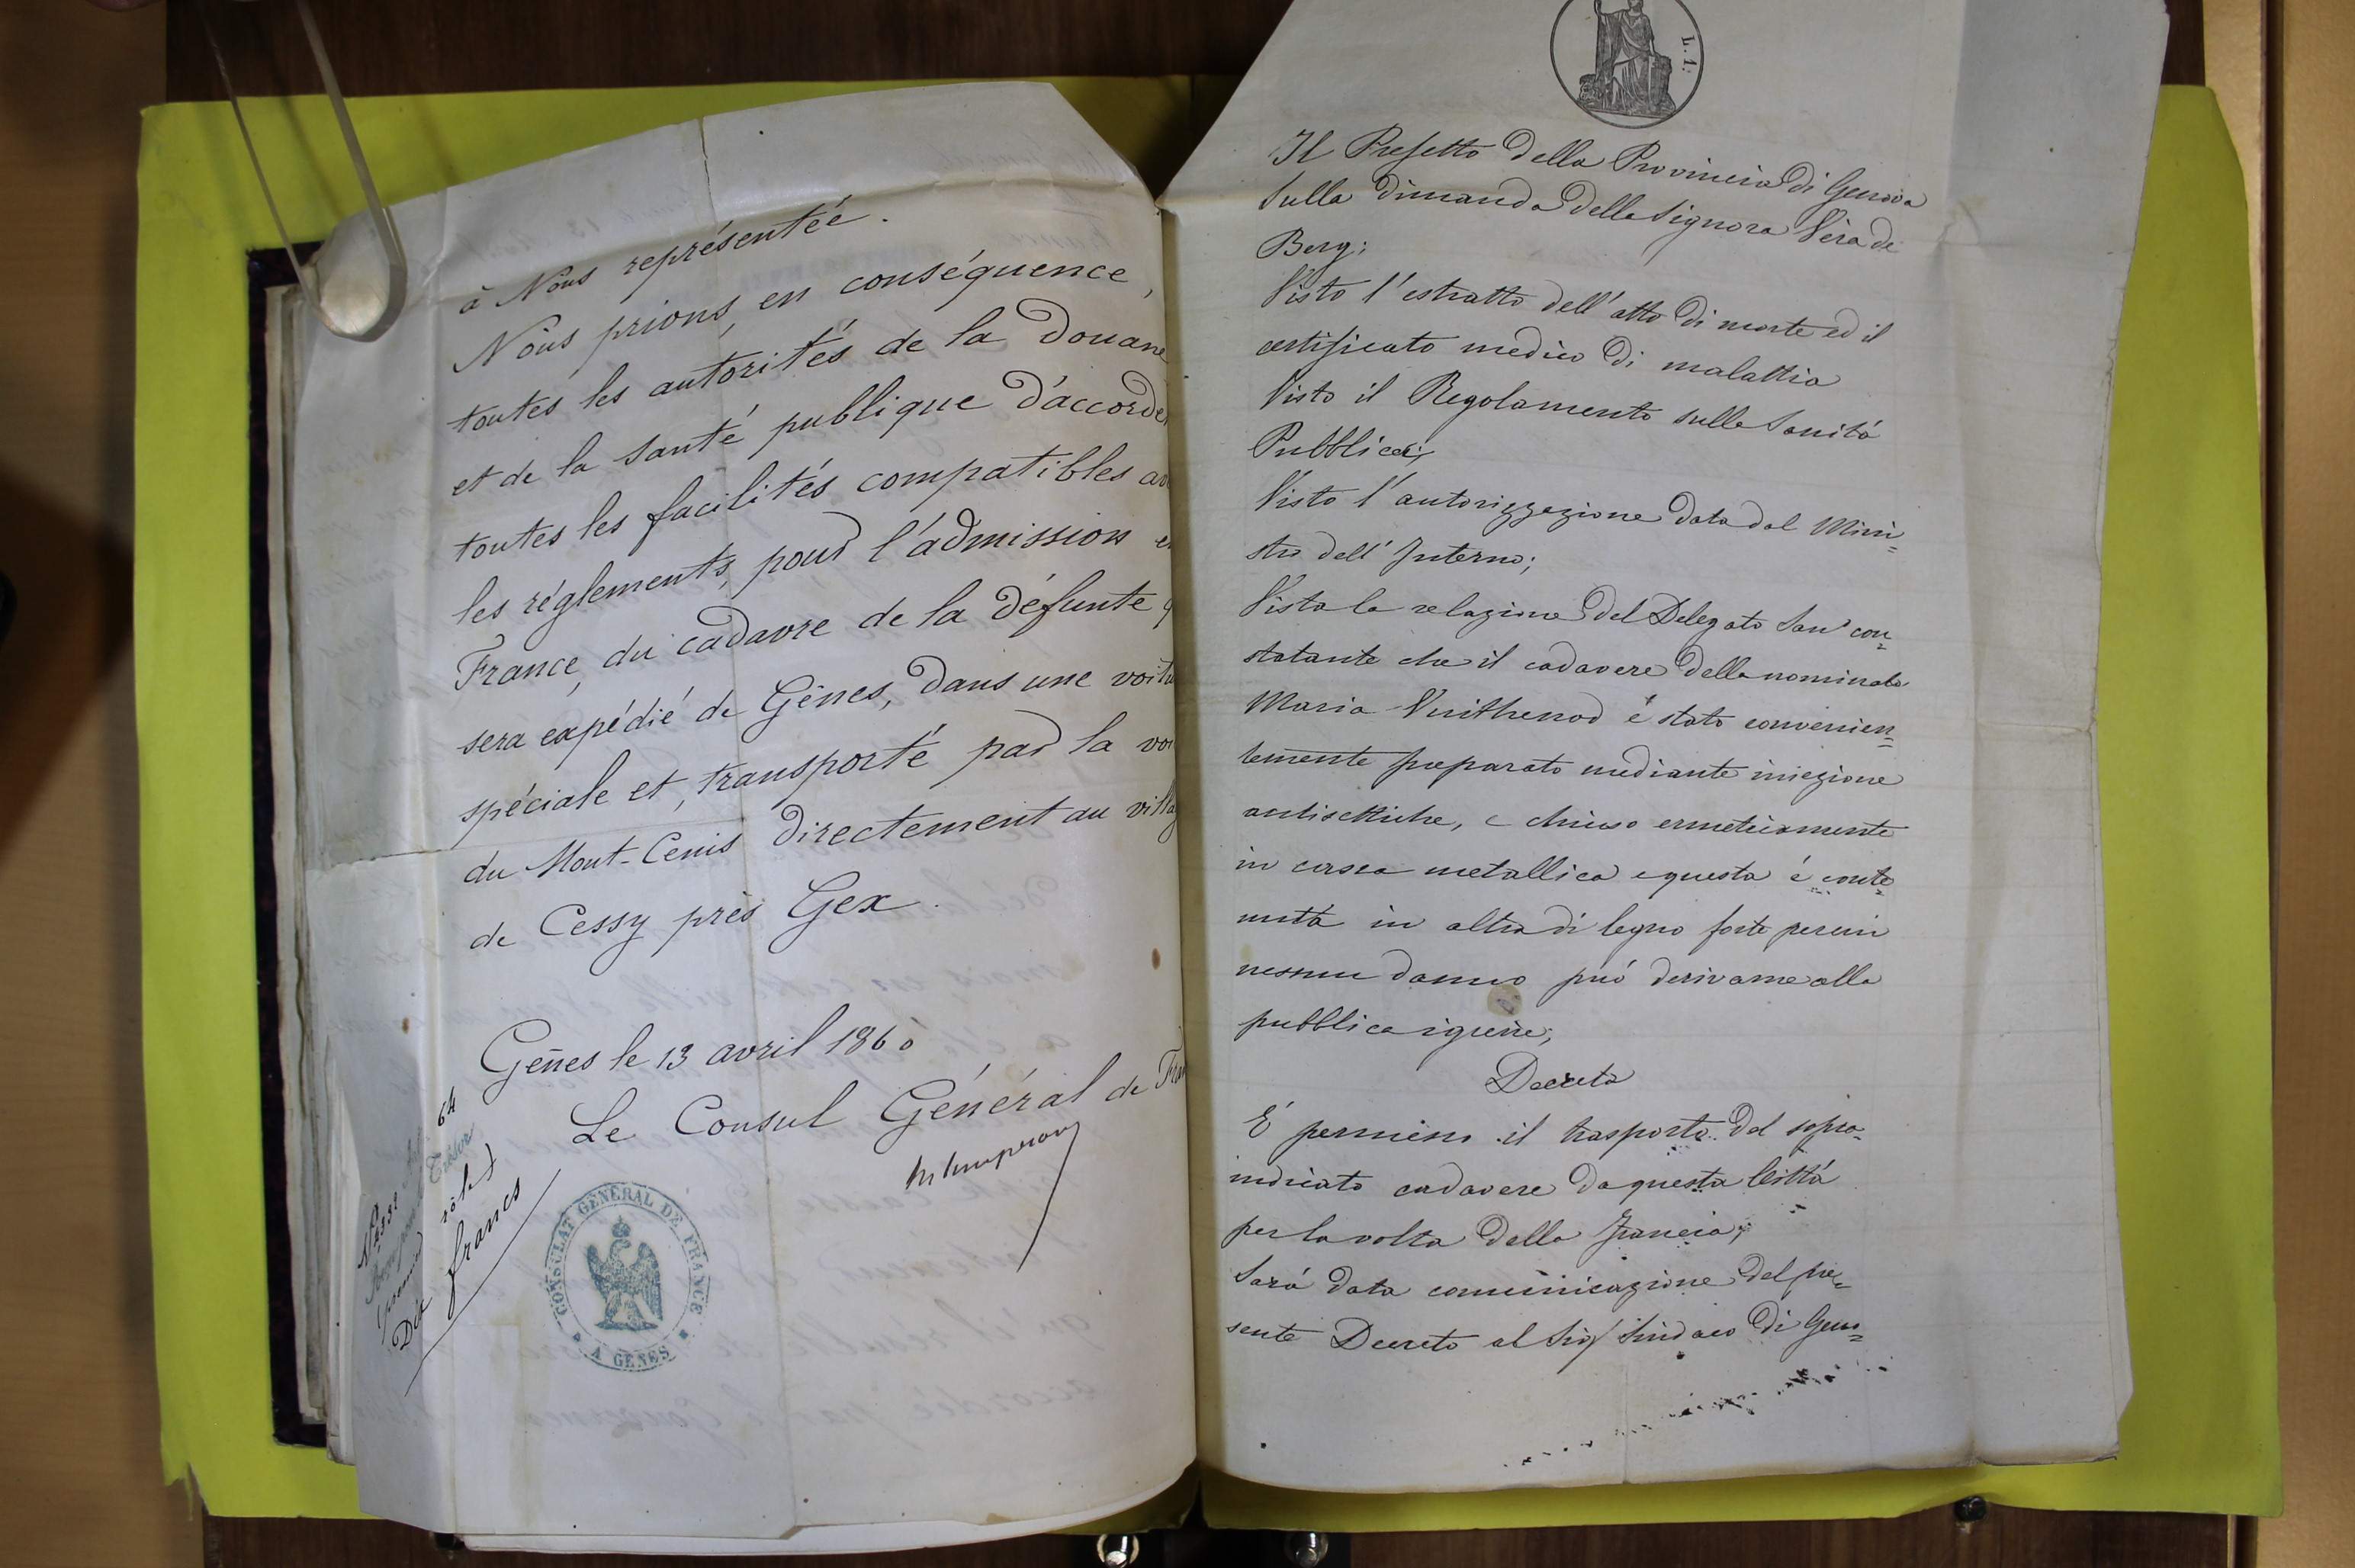 à Nous représentée.
Nous prions, en conséquence,
toutes les autorités de la Douane
et de la Santé publique d'accorde
toutes les facilités compatibles av
les réglements, pour l'admission e
France, du cadavre de la défunte q
sera expédié de Gênes, dans une voitu
spéciale et, transporté par la voi
du Mont-Cenis directement au villag
de Cessy près Gex.
Gênes le 13 avril 186
Le Consul Général de Fran
64
Dix francs
CONSULAT GÉNÉRAL DE FRANCE
A GÊNES
L.1.
Il Prefetto della Provincia di Genova
Sulla dimanda della Signora Vera de
Berg;
Visto l'estratto dell'atto di morte ed il
certificato medico di malattia
Visto il Regolamento sulla Sanità
Pubblica;
Visto l'autorizzazione data dal Mini=
stro dell'Interno;
Vista la relazione del Delegato San° con=
statante che il cadavere della nominata
Maria é stato convenien=
temente preparato mediante iniezione
antisettiche, e chiuso ermeticamente
in cassa metallica e questa é conte=
nuta in altra di legno forte percui
nessun danno può derivarne alla
pubblica igiene;
Decreta
É permesso il trasporto del sopra=
indicato cadavere da questa Città
per la volta della Francia;
Sará data comunicazione del pre=
sente Decreto al Sig Sindaco di Geno=